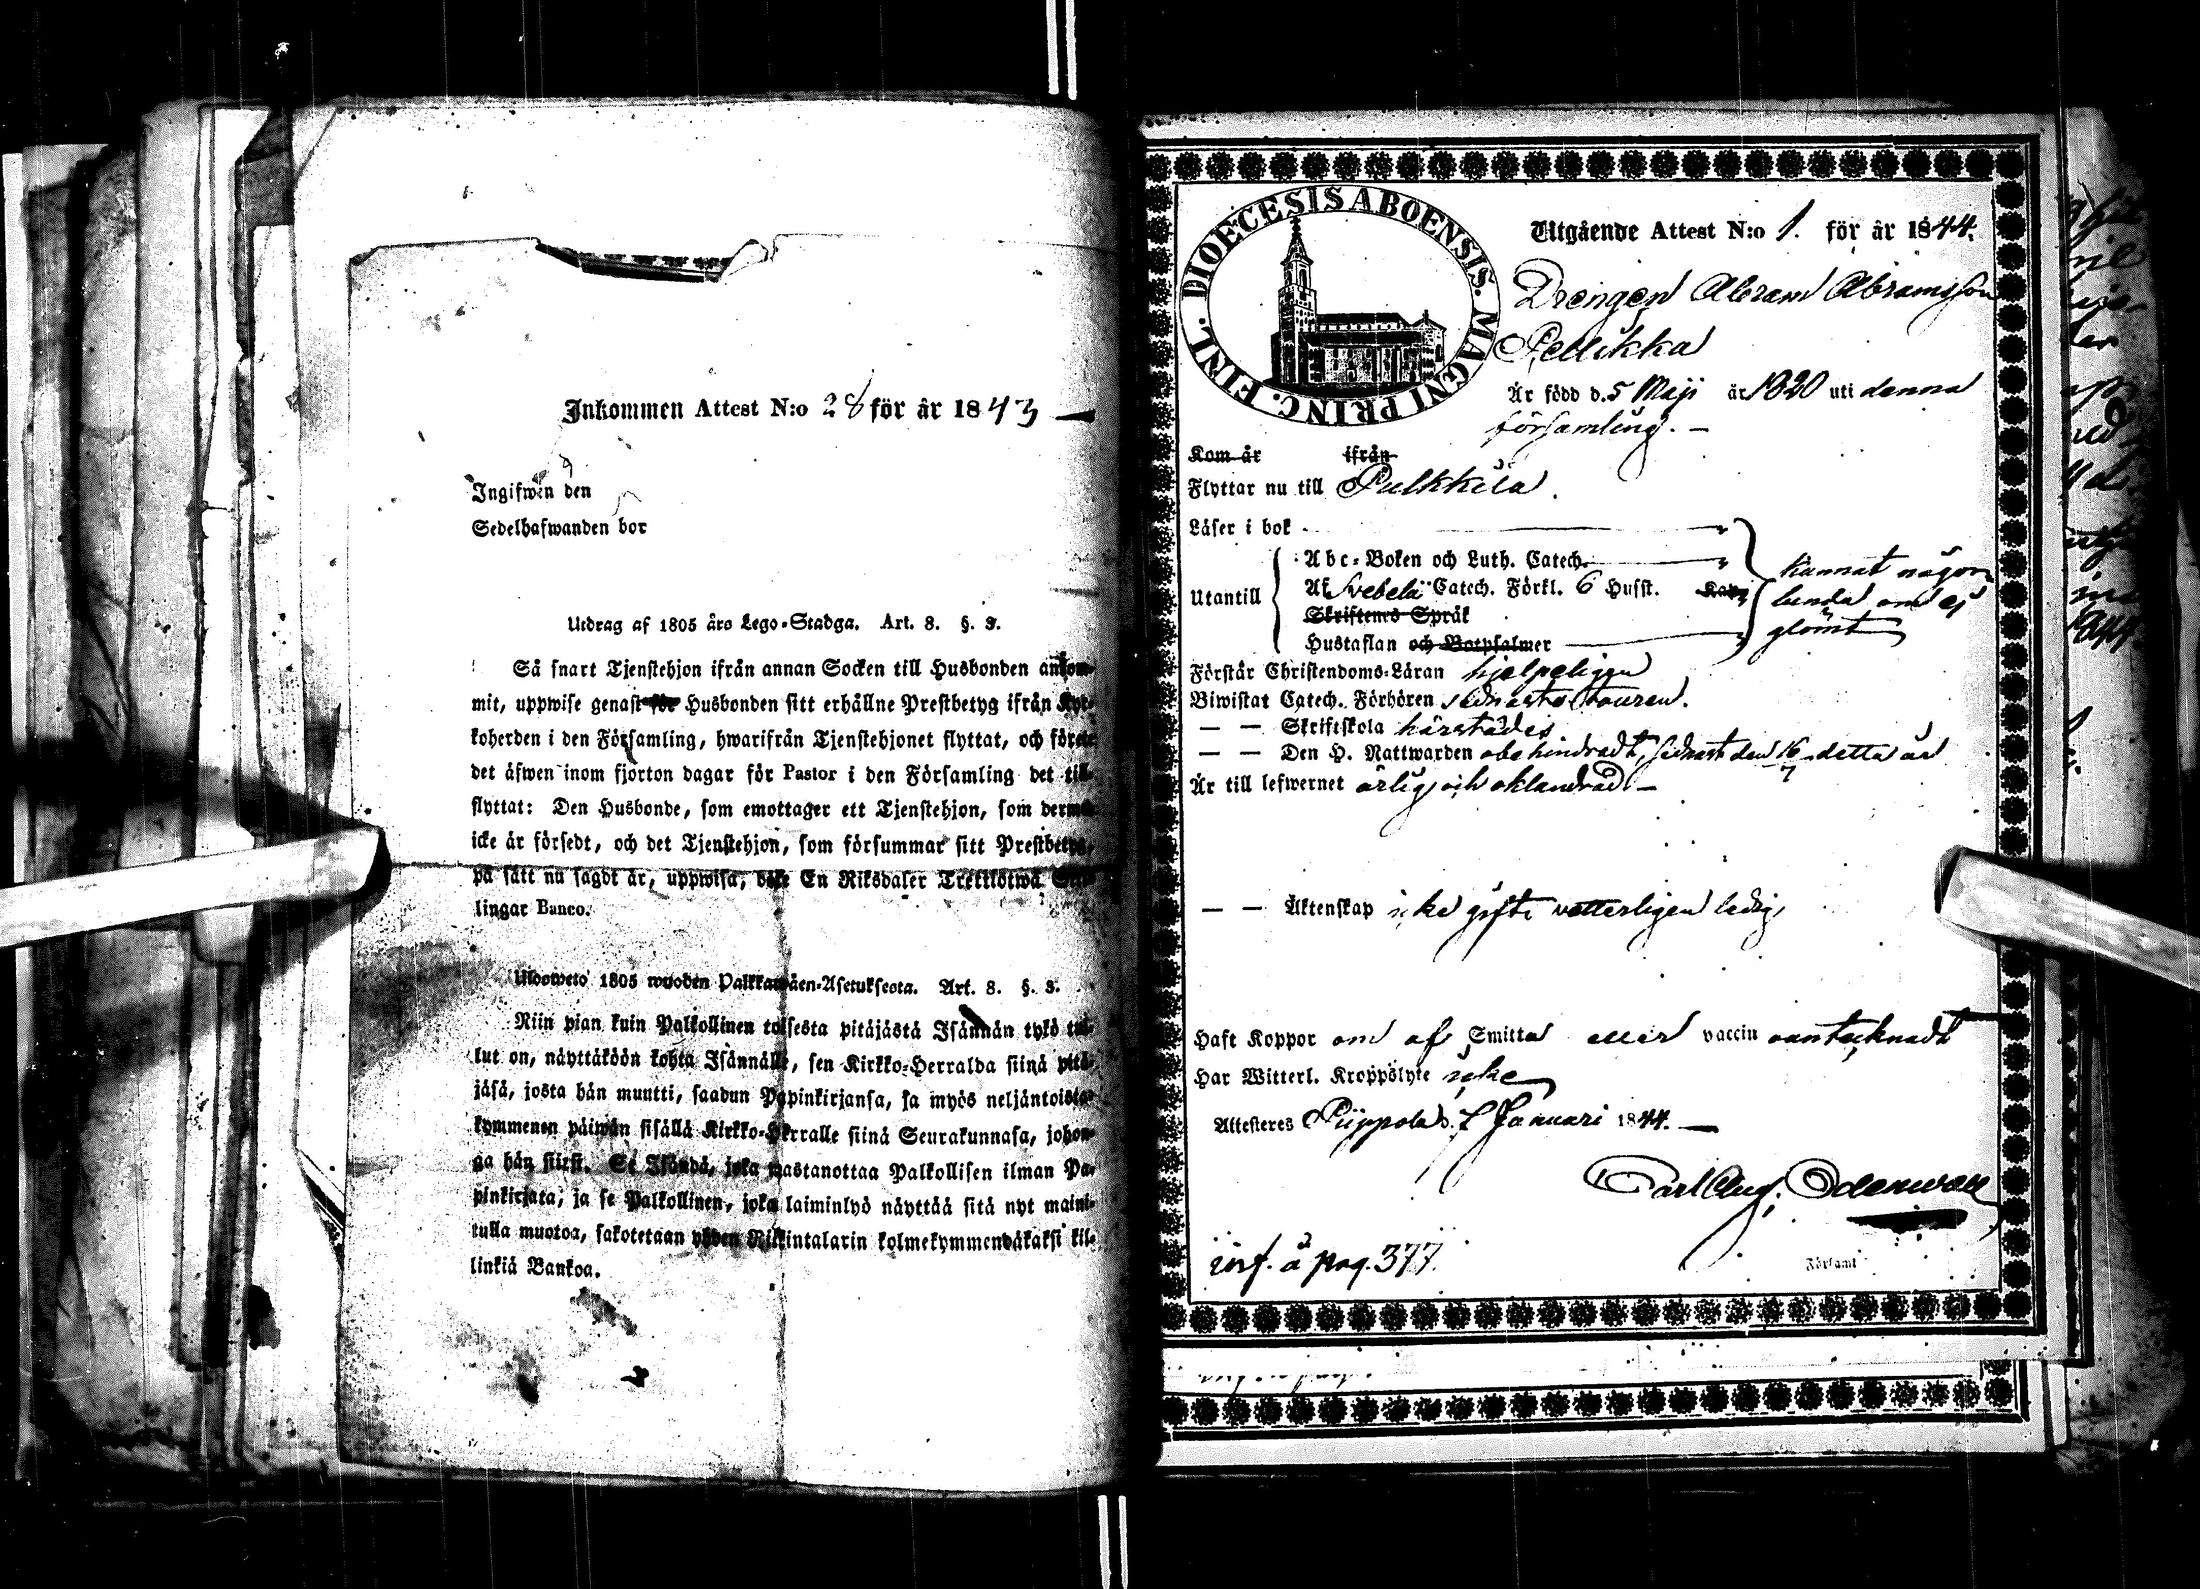 Inkommen Attest N:o 28 för år 1843
Ingifwen den
Sedelhafwanden bor
Utdrag af 1805 års Lego-Stadga. Art. 8. §. 3.
Så snart Tjenstehjon ifrån annan Socken till Husbonden ankom-
mit, uppwise genast för Husbonden sitt erhållne Prestbetyg ifrån Kyr-
koherden i den Församling, hwarifrån Tjenstehjonet flyttat, och förete
det äfwen inom fjorton dagar för Pastor i den Församling det till-
flyttat: Den Husbonde, som emottager ett Tjenstehjon, som dermed
icke är försedt, och det Tjenstehjon, som försummar sitt Prestbetyg,
på sätt nu sagdt är, uppwisa, böte En Riksdaler Trettiotwå
lingar Banco.
Ulosweto 1805 wuoden Palkkawäen-Asetuksesta. Art. 8. §. 3.
Niin pian kuin Palkollinen toisesta pitäjästä Isännän tykö tul-
lut on, näyttäköön kohta Isännälle, sen Kirkko-Herralda siinä pitä-
jäsä, josta hän muutti, saadun Papinkirjansa, ja myös neljäntoista-
kymmenen päiwän sisällä Kirkko-Herralle siinä Seurakunnasa, johon-
ga hän siirst. Se Isändä, joka wastanottaa Palkollisen ilman Pa-
pinkirjata, ja se Palkollinen, joka laiminlyö näyttää sitä nyt maini-
tulla muotoa, sakotetaan yhden Riikintalarin kolmekymmendäkaksi kil-
linkiä Bankoa.
DIOECESIS ABOENSIS. MAGNI PRINC. FINL.
Utgående Attest N:o 1. för år 1844.
Drengen Abram Abramsson
Pellikka
Är född d. 5 Maji år 1820 uti denna
församling. –
Kom år ifrån
Flyttar nu till Pulkkila.
Läser i bok
Abc-Boken och Luth. Catech.
Utantill Af Svebelii Catech. Förkl. 6 Husst. kunnat någor-
Skriftenes Språk lunda om ej
Hustaflan och Botpsalmer glömt
Förstår Christendoms-Läran hjelpeligen
Biwistat Catech. Förhören sednaste åuren.
— — Skriftskola härstädes
— — Den H. Nattwarden obehindradt, sednast den 16/7 detta år
Är till lefwernet ärlig och oklandrad –
— — Äktenskap icke gift vetterligen ledig
Haft Koppor om af Smitta eller vaccin oantecknadt
Har Witterl. Kroppslyte icke
Attesteres Piippola d. 7 Januari 1844. —
Carl Aug. Odenwall
Församl
inf. å pag. 377.